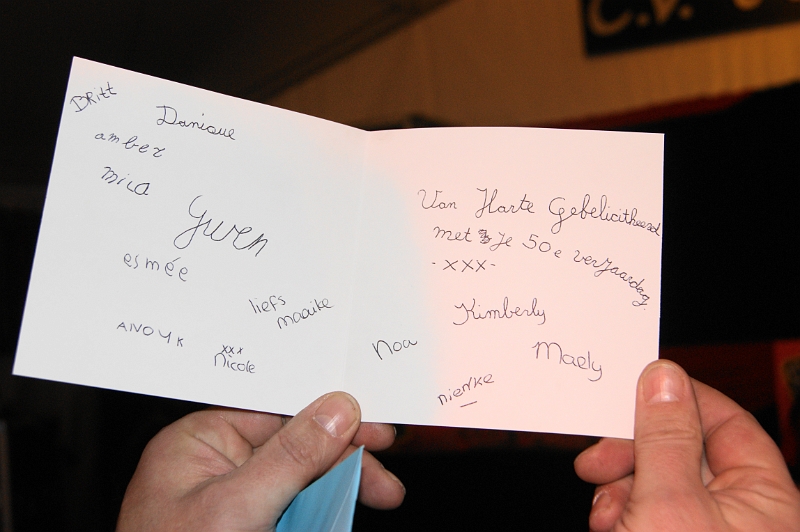 C.V.
Britt
Danique
amber
mica
Gwen
esmée
liefs
maaike
ANOUK
xxx
Nicole
Van Harte Gebelicitheerd
met Je 50e verjaardag.
-xxx-
Kimberly
Noa
Maely
nienke